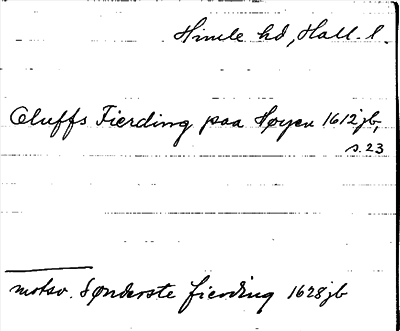 Himle hd, Hall. l.
Oluffs Fierding paa Søyen 1612 jb,
s. 23
motsv. Sønderste fierding 1628 jb